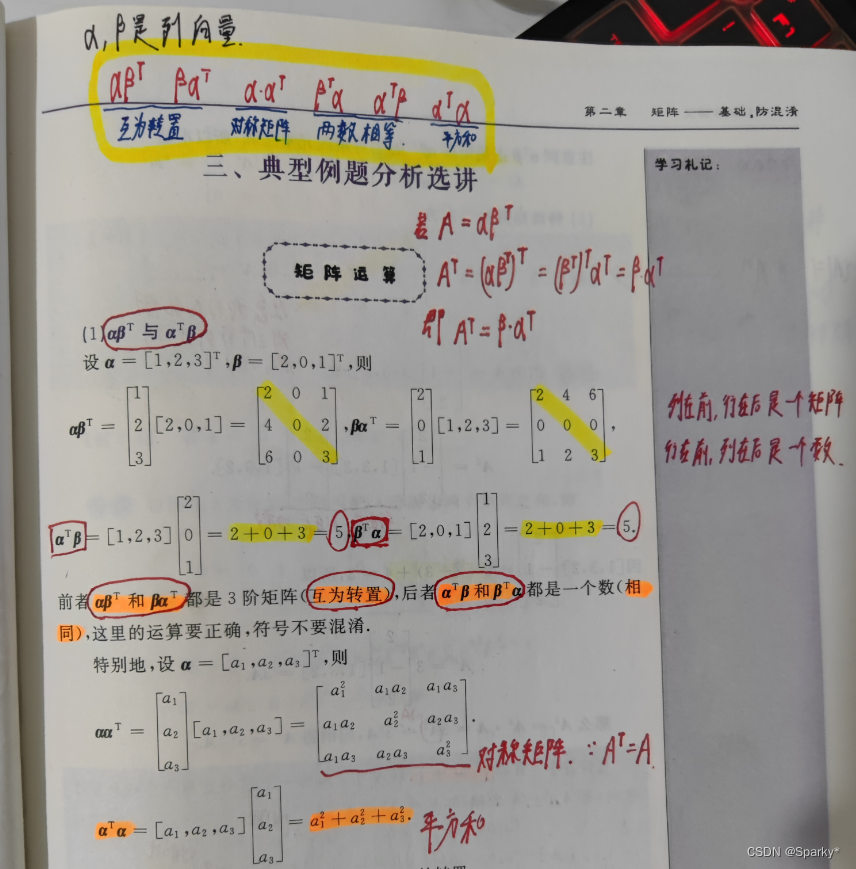 α,β是列向量.
αβᵀ βαᵀ α·αᵀ βᵀα αᵀβ αᵀα
互为转置 对称矩阵 两数相等. 平方和
第二章 矩阵——基础,防混淆
三、典型例题分析选讲
学习札记:
若 A = αβᵀ
矩阵运算
Aᵀ = (αβᵀ)ᵀ = (βᵀ)ᵀαᵀ = β·αᵀ
即 Aᵀ = β·αᵀ
(1) αβᵀ 与 αᵀβ
设 α = [1,2,3]ᵀ,β = [2,0,1]ᵀ,则
αβᵀ = [1 2 3] [2,0,1] = [2 0 1; 4 0 2; 6 0 3] ,βαᵀ = [2 0 1] [1,2,3] = [2 4 6; 0 0 0; 1 2 3] ,
列在前,行在后是一个矩阵
行在前,列在后是一个数.
αᵀβ = [1,2,3] [2 0 1] = 2+0+3 = 5, βᵀα = [2,0,1] [1 2 3] = 2+0+3 = 5.
前者 αβᵀ 和 βαᵀ 都是 3 阶矩阵(互为转置),后者 αᵀβ 和 βᵀα 都是一个数(相
同),这里的运算要正确,符号不要混淆.
特别地,设 α = [a₁,a₂,a₃]ᵀ,则
ααᵀ = [a₁ a₂ a₃] [a₁,a₂,a₃] = [a₁² a₁a₂ a₁a₃; a₁a₂ a₂² a₂a₃; a₁a₃ a₂a₃ a₃²] .
对称矩阵. ∵ Aᵀ=A
αᵀα = [a₁,a₂,a₃] [a₁ a₂ a₃] = a₁² + a₂² + a₃².
平方和
CSDN @Sparky*